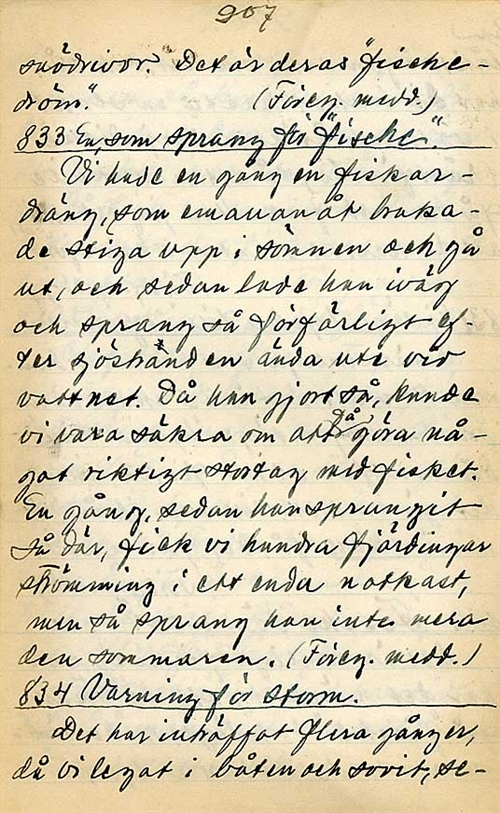 207
snödrivor. Det är deras "fiske-
dröm." (Föreg. medd.)
833 En, som sprang för "fiske".
Vi hade en gång en fiskar-
dräng, som emananåt bruka-
de stiga upp i sömnen och gå
ut, och sedan lade han iväg
och sprang så förfärligt ef-
ter sjöstranden ända ute vid
vattnet. Då han gjort så, kunde
vi vara säkra om att få göra nå-
got riktigt stortag med fisket.
En gång, sedan han sprungit
så där, fick vi hundra fjärdingar
strömming i ett enda notkast,
men så sprang han inte mera
den sommaren. (Föreg. medd.)
834 Varning för storm.
Det har inträffat flera gånger,
då vi legat i båten och sovit, se-